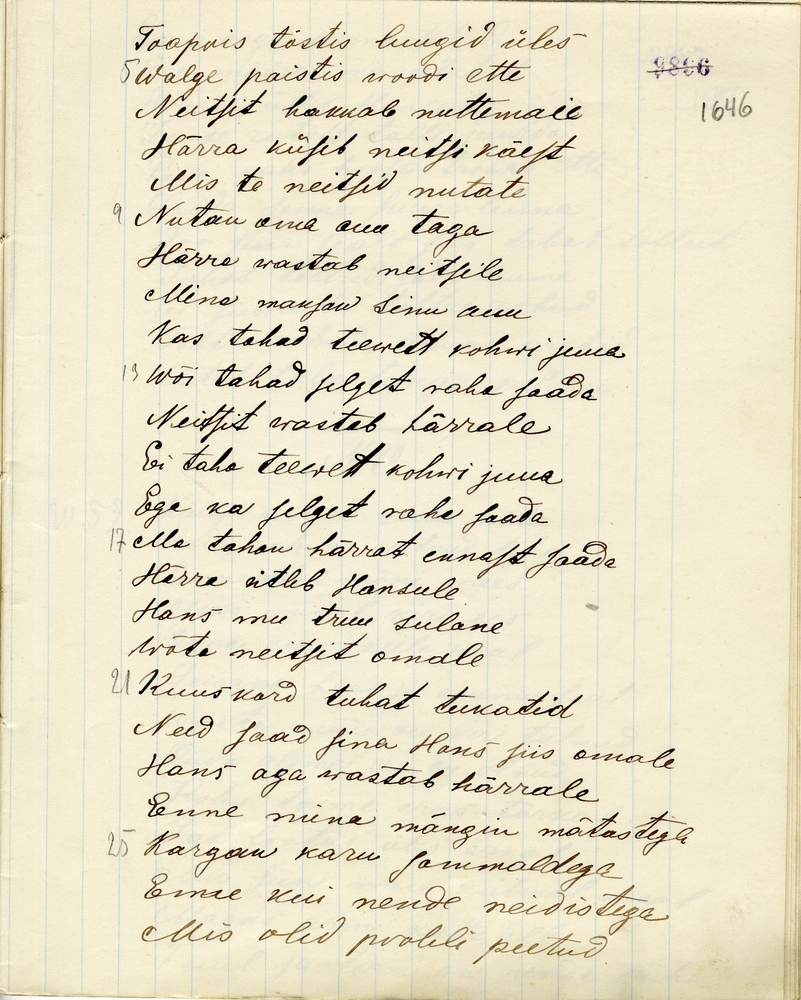 Toapois tõstis luugid üles
9896
5 Walge paistis woodi ette
1646
Neitsit hakkab nuttemaie
Härra küsib neitsi käest
Mis te neitsid nutate
9 Nutan oma auu taga
Härra wastab neitsile
Mina maksan sinu auu
Kas tahad teewett kohwi juua
13 Wõi tahad selget raha saada
Neitsit wastab härrale
Ei taha teewett kohwi juua
Ega ka selget raha saada
17 Ma tahan härrat ennast saada
Härra ütleb Hansule
Hans mu truu sulane
Wõta neitsit omale
21 Kuuskord tuhat tukatid
Need saad sina Hans siis omale
Hans aga wastab härrale
Enne mina mängin mätastega
25 Kargan karu sammaldega
Enne kui nende neidistega
Mis olid pooleli peetud.